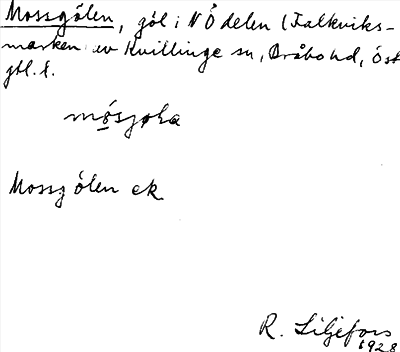 Mossgölen, göl i NÖ delen (Falkviks-
marken av Kvillinge sn, Bråbo hd, Öst
gtl. l.
mósjøla
Mossgölen ek
R. Liljefors
1928